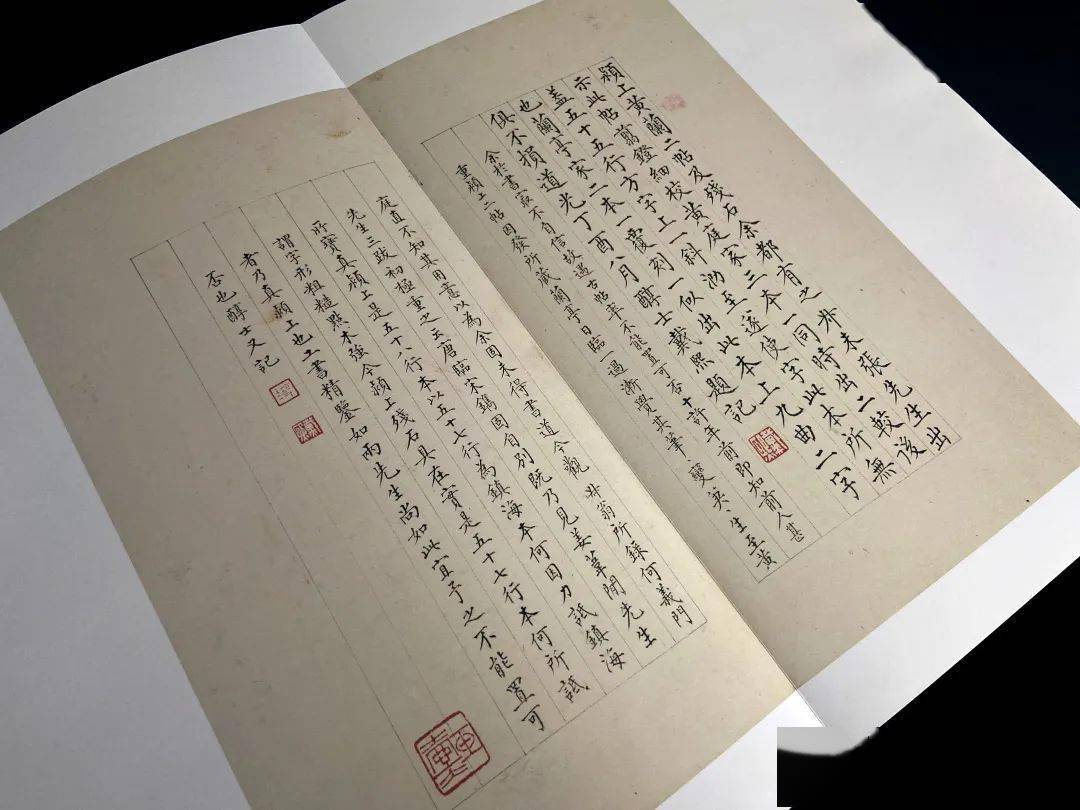 潁上黃蘭二帖及殘石余都有之叔未張先生出
示此帖翦鐙細校黃庭家三本一同時出二較後
蓋五十五行方字上一斜泐至邃使字此本所無
也蘭亭家二本一覆刻一似出此本上九曲二字
俱不損道光丁酉八月醇士戴熙題記
余於書最不自信故遇古帖率不能置可否十許年前即知前人甚
重潁上二帖因發所藏蘭亭日臨一過漸覺其筆〻變〻生至黃
庭直不知其用意以為余固未得書道今觀叔翁所錄何義門
先生三跋初極重之云唐臨宋鐫固自別既乃見姜葦間先生
所寶真潁上是五十八行本以五十七行為鎮海本何因力詆鎮海
謂字形粗糙點木強今潁上殘石具在實是五十七行本何所詆
者乃真潁上也工書精鑒如兩先生尚如此宜予之不能置可
否也醇士又記